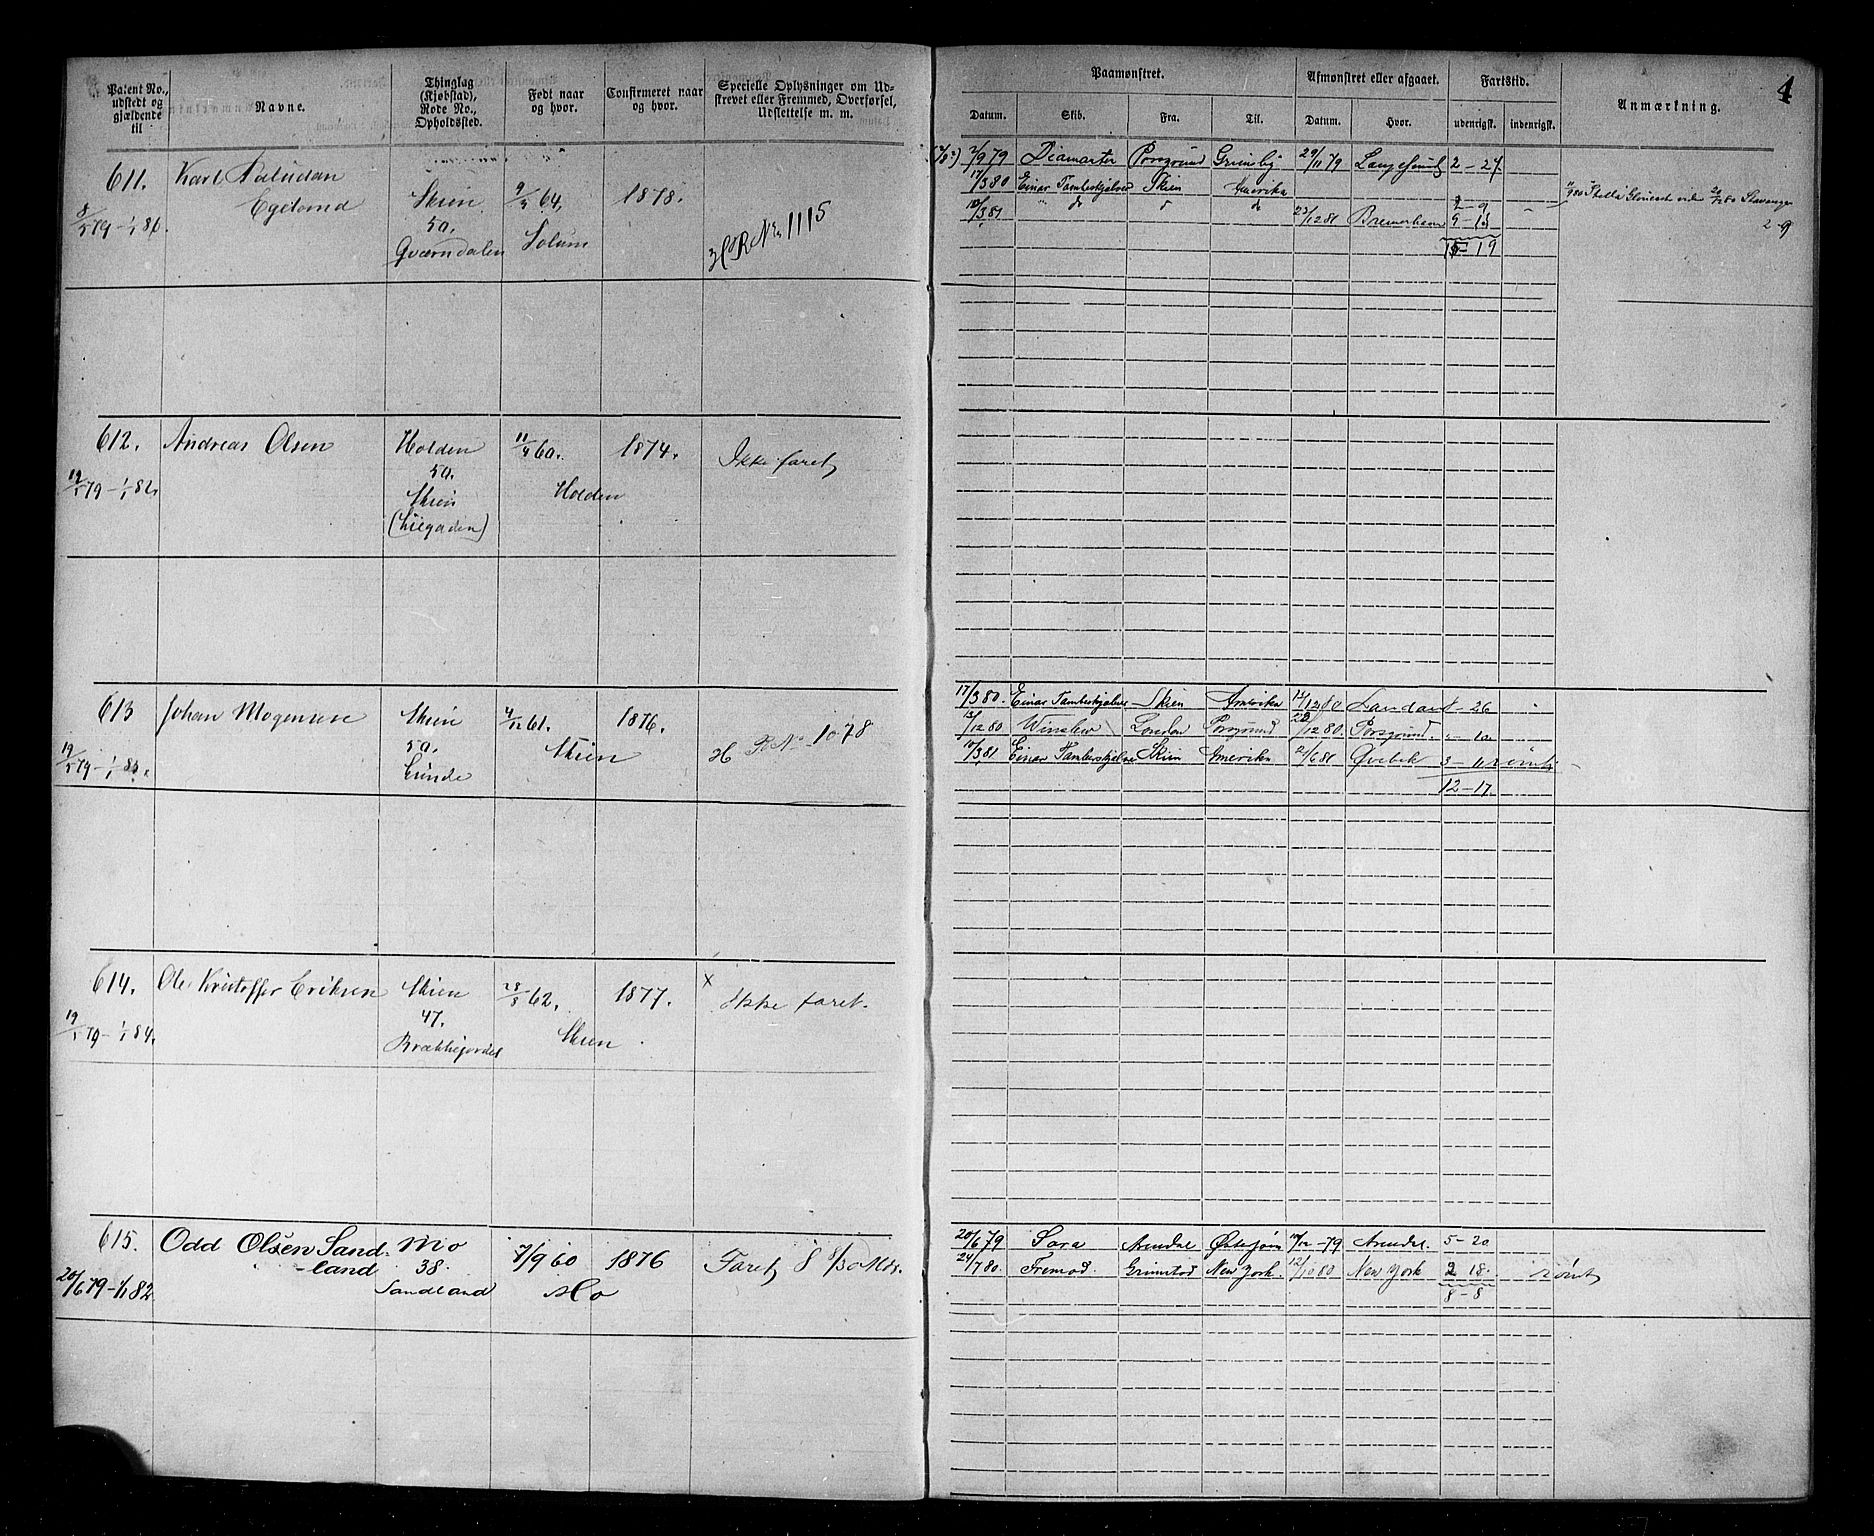 4
Patent No., udstedt og gjældende til
Navne.
Thinglag (Kjøbstad), Rode No., Opholdssted.
Født naar og hvor.
Confirmeret naar og hvor.
Specielle Oplysninger om Udskrevet eller Fremmed, Overførsel, Udslettelse m. m.
Paamønstret.
Afmønstret eller afgaaet.
Fartstid.
Anmærkning.
Datum. Skib. Fra. Til. Datum. Hvor. udenrigsk. indenrigsk.
611. Karl Paludan Skien 9/4 64, 1878.
Egelund 50. Solum
8/5 79 – 1/1 86. Gværndalen H R No 1115
2/9 79 Diamanten Porsgrund Grimsby 29/11 79 Langesund 2 – 27.
17/3 80 Einar Tambeskjelver Skien Amerika
10/3 81 " do do 23/12 81 Bremerhaven 9 – 13
15 – 19
2–9
612. Andreas Olsen Holden 11/4 60. 1874. Ikke faret
19/5 79 – 1/1 82. 50. Holden
Skien
613 Johan Mogensen Skien 4/12 61. 1876.
19/5 79 – 50. Skien H R No 1078
Lunde
17/3 80. Einar Tambeskjelver Skien Amerika 12/12 80 London 8 – 26
13/12 80 Winslow London Porsgrund 22/12 80. Porsgrund. " – 10
10/3 81 Einar Tambeskjelver Skien Amerika 21/6 81 Qvebek 3 – 11 rømt
12 – 17.
614. Ole Kristoffer Eriksen Skien 28/8 62, 1877. x Ikke faret.
19/5 79 – 1/1 84. 47. Skien
Brækkejordet
615. Odd Olsen Sand- Mo 7/9 60 1876 Faret 8 8/30 Mdr.
land 38. Mo
20/6 79 – 1/1 82 Sandland
20/6 79 Sara Arendal Østersjøen 79 Arendal. 5 – 20
24/7 80. Fremad. Grimstad New York. 12/10 80 New York 2 18. rømt
8 – 8